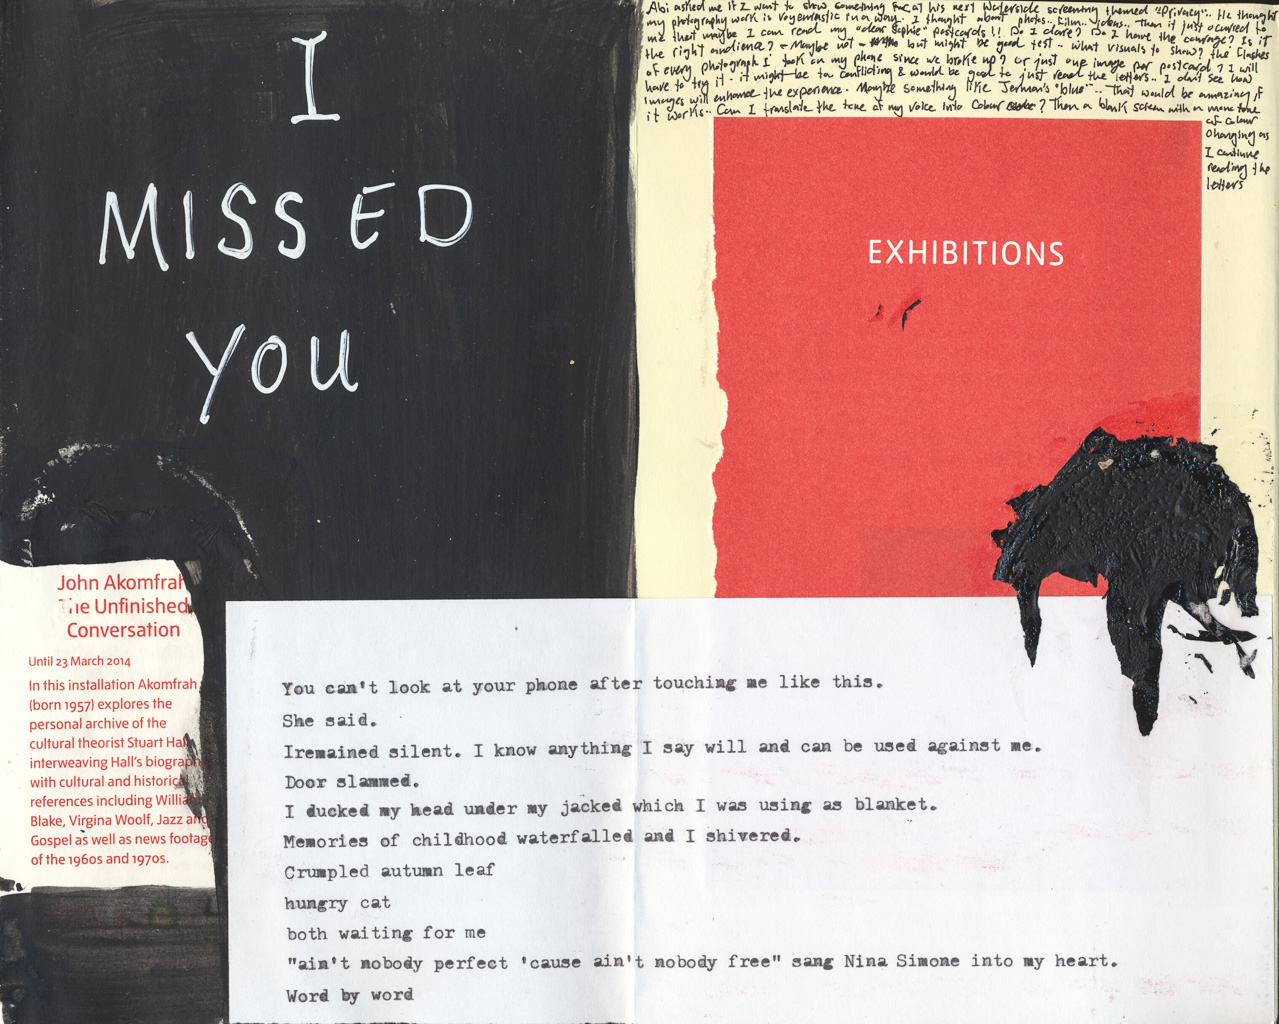 I
MISSED
YOU
Abi asked me if I want to show something for at his next Waterside screening themed "Privacy".. He thought
my photography work is voyeristic in a way. I thought about photos.. film.. videos.. Then it just occurred to
me that maybe I can read my "dear Sophie" postcards!! Do I dare? Do I have the courage? Is it
the right audience? - Maybe not - but might be good test.. what visuals to show? the clashes
of every photograph I took on my phone since we broke up? or just one image per postcard? I will
have to try it - it might be too conflicting & would be good to just read the letters.. I don't see how
images will enhance the experience. Maybe something like Jerman's "blue".. That would be amazing if
it works.. Can I translate the tone of my voice into Colour? Then a blank screen with a mono tone
of colour
changing as
I continue
reading the
letters
EXHIBITIONS
John Akomfrah
The Unfinished
Conversation
Until 23 March 2014
In this installation Akomfrah
(born 1957) explores the
personal archive of the
cultural theorist Stuart Hall
interweaving Hall's biography
with cultural and historical
references including William
Blake, Virgina Woolf, Jazz and
Gospel as well as news footage
of the 1960s and 1970s.
You can't look at your phone after touching me like this.
She said.
Iremained silent. I know anything I say will and can be used against me.
Door slammed.
I ducked my head under my jacked which I was using as blanket.
Memories of childhood waterfalled and I shivered.
Crumpled autumn leaf
hungry cat
both waiting for me
"ain't nobody perfect 'cause ain't nobody free" sang Nina Simone into my heart.
Word by word